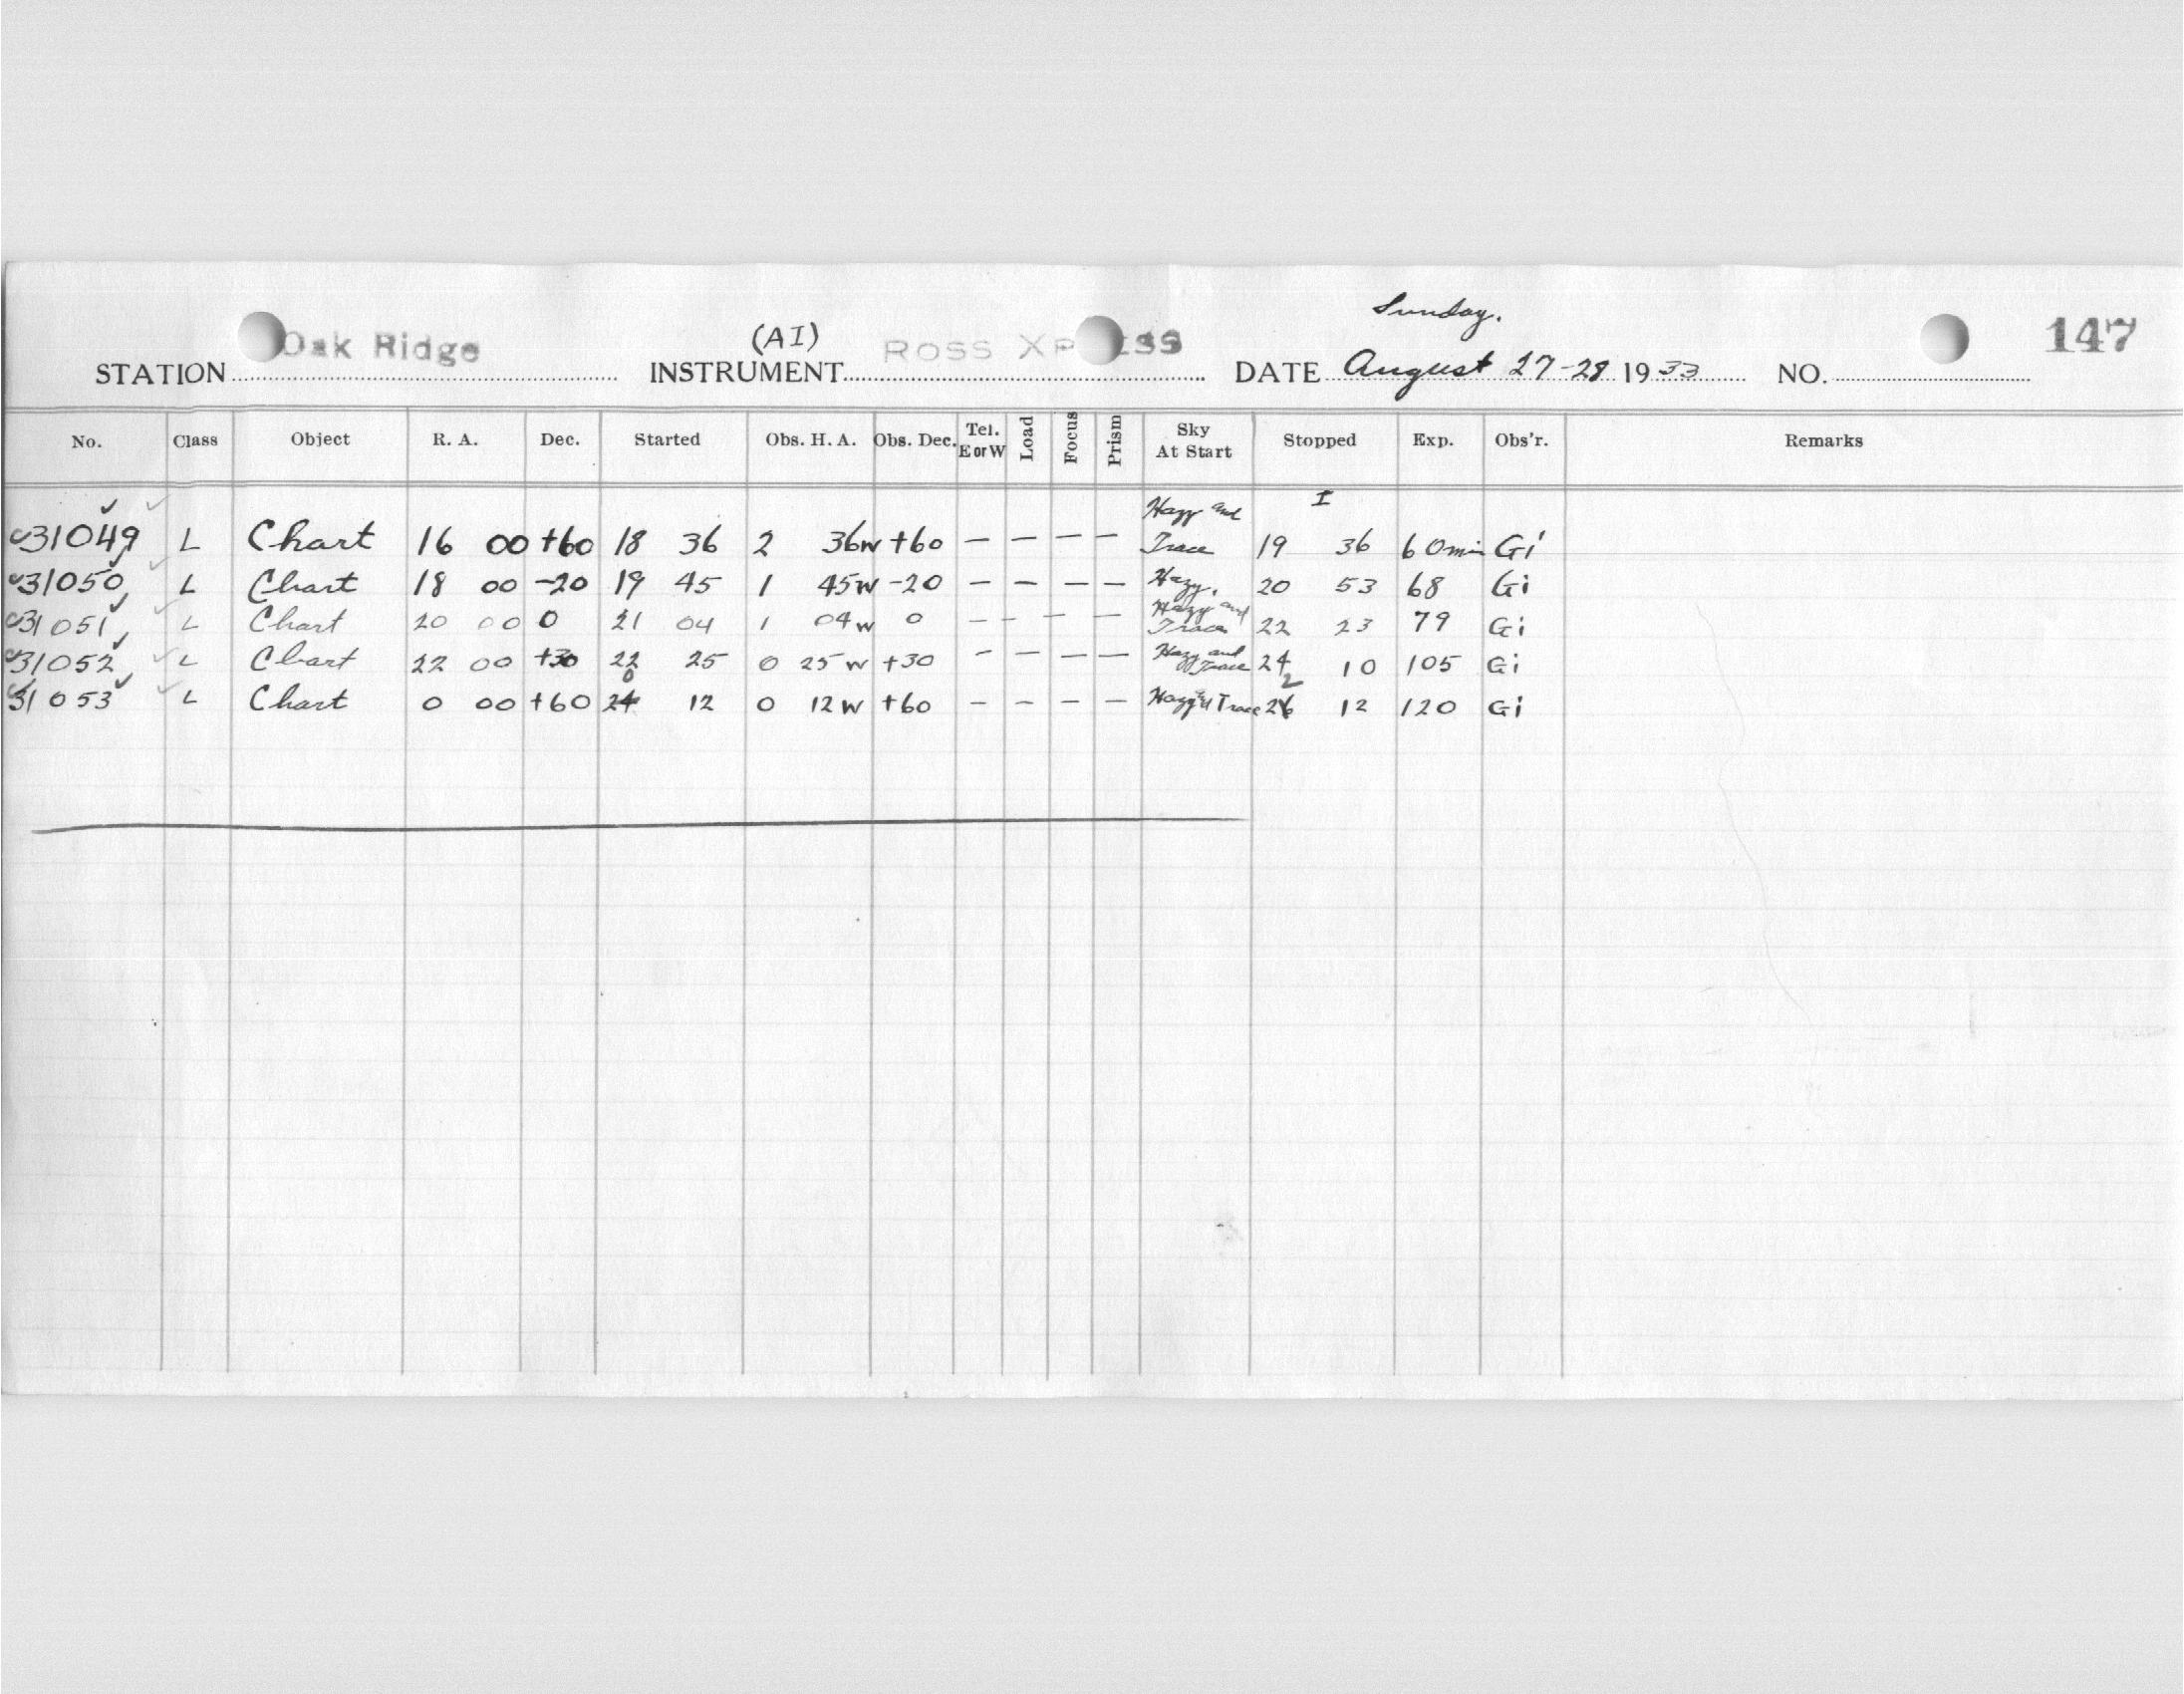 Sunday.
Oak Ridge (AI) ROSS XP SS 147
STATION INSTRUMENT DATE August 27-28 1933 NO.
No. Class Object R. A. Dec. Started Obs. H. A. Obs. Dec. Tel. E or W Load Focus Prism Sky At Start Stopped Exp. Obs'r. Remarks
I
31049 L Chart 16 00 +60 18 36 2 36w +60 — — — — Hazy and Trace 19 36 60min Gi
31050 L Chart 18 00 -20 19 45 1 45w -20 — — — — Hazy. 20 53 68 Gi
31051 L Chart 20 00 0 21 04 1 04w 0 — — — — Hazy and Trace 22 23 79 Gi
31052 L Chart 22 00 +30 22 25 0 25w +30 — — — — Hazy and Trace 24 10 105 Gi
31053 L Chart 0 00 +60 24 0 12 0 12w +60 — — — — Hazy & Trace 26 2 12 120 Gi